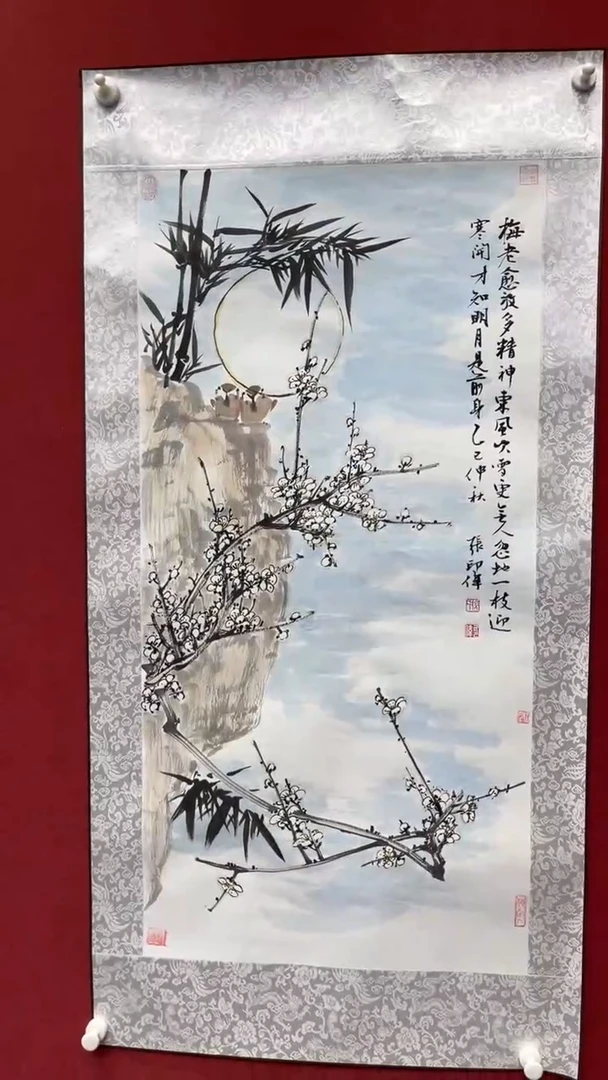 梅老愈放多精神東風吹雪更無人忽地一枝迎
寒開才知明月是前身乙巳仲秋
張印偉